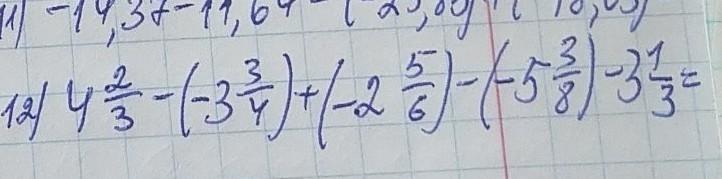 11) -14,37-11,64-(-25,
12) 4 2/3 - (-3 3/4) + (-2 5/6) - (-5 3/8) - 3 1/3 =